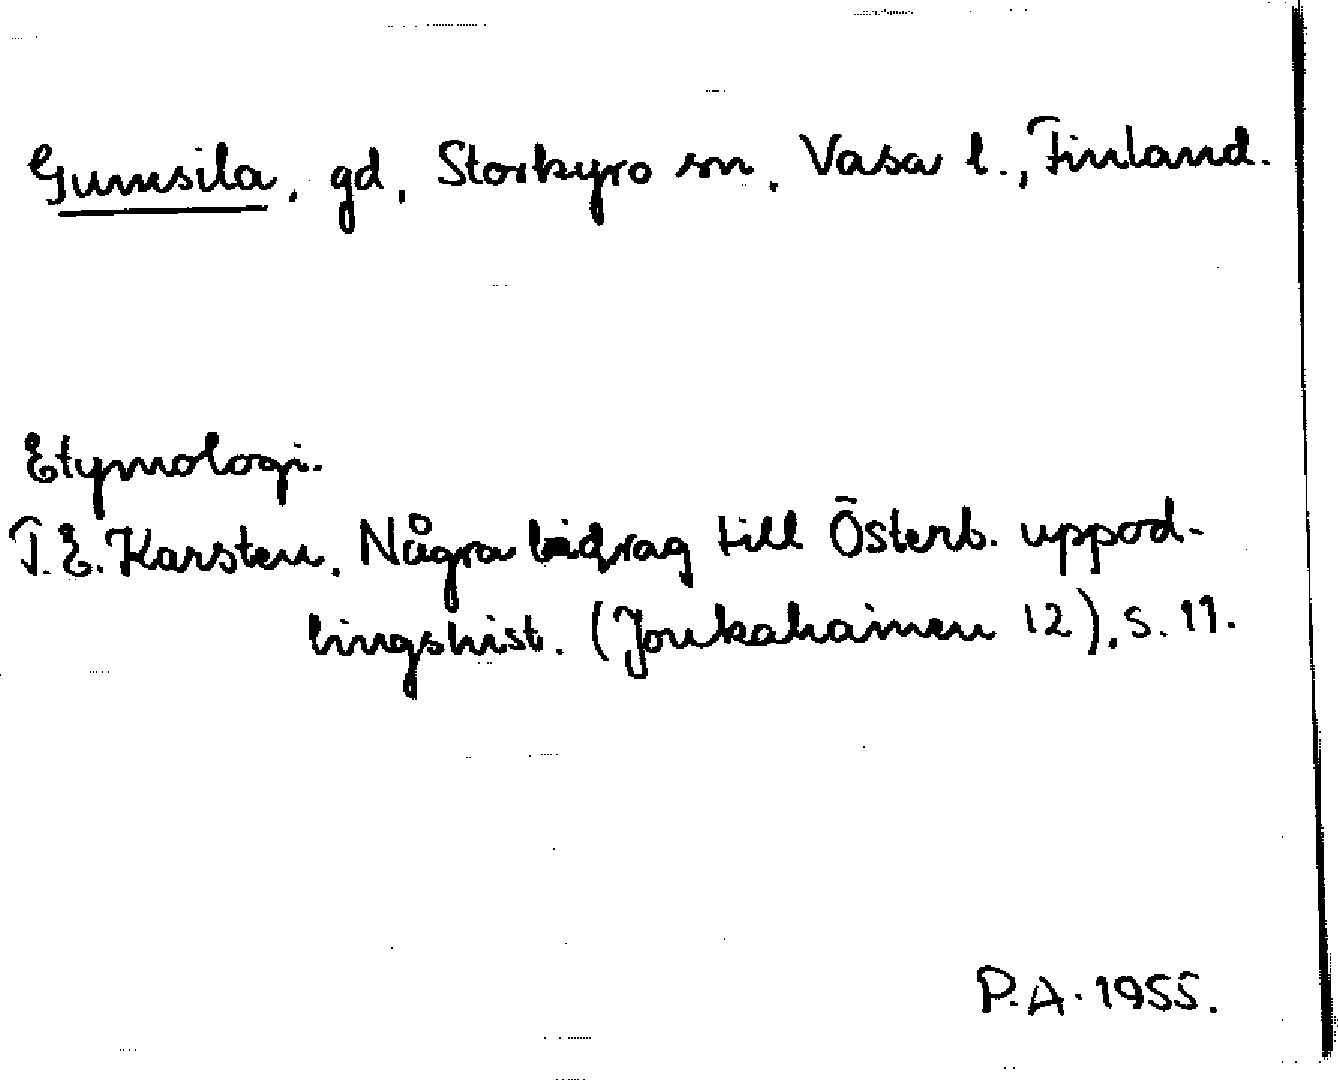 Gumsila, gd, Storkyro sn, Vasa l., Finland.
Etymologi.
T.E. Karsten, Några bidrag till Österb. uppod-
lingshist. (Joukahainen 12), s. 11.
P.A. 1955.